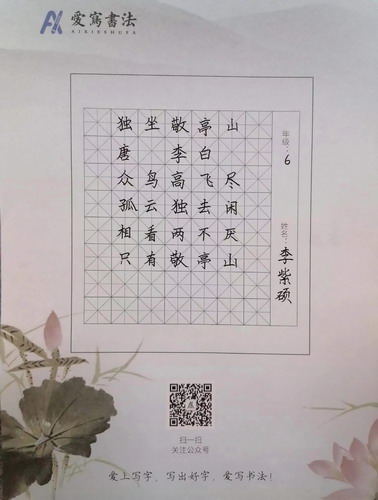 愛寫書法
AIXIESHUFA
独坐敬亭山
唐 李白
众鸟高飞尽
孤云独去闲
相看两不厌
只有敬亭山
年级：6
姓名：李紫硕
扫一扫
关注公众号
爱上写字，写出好字，爱写书法！